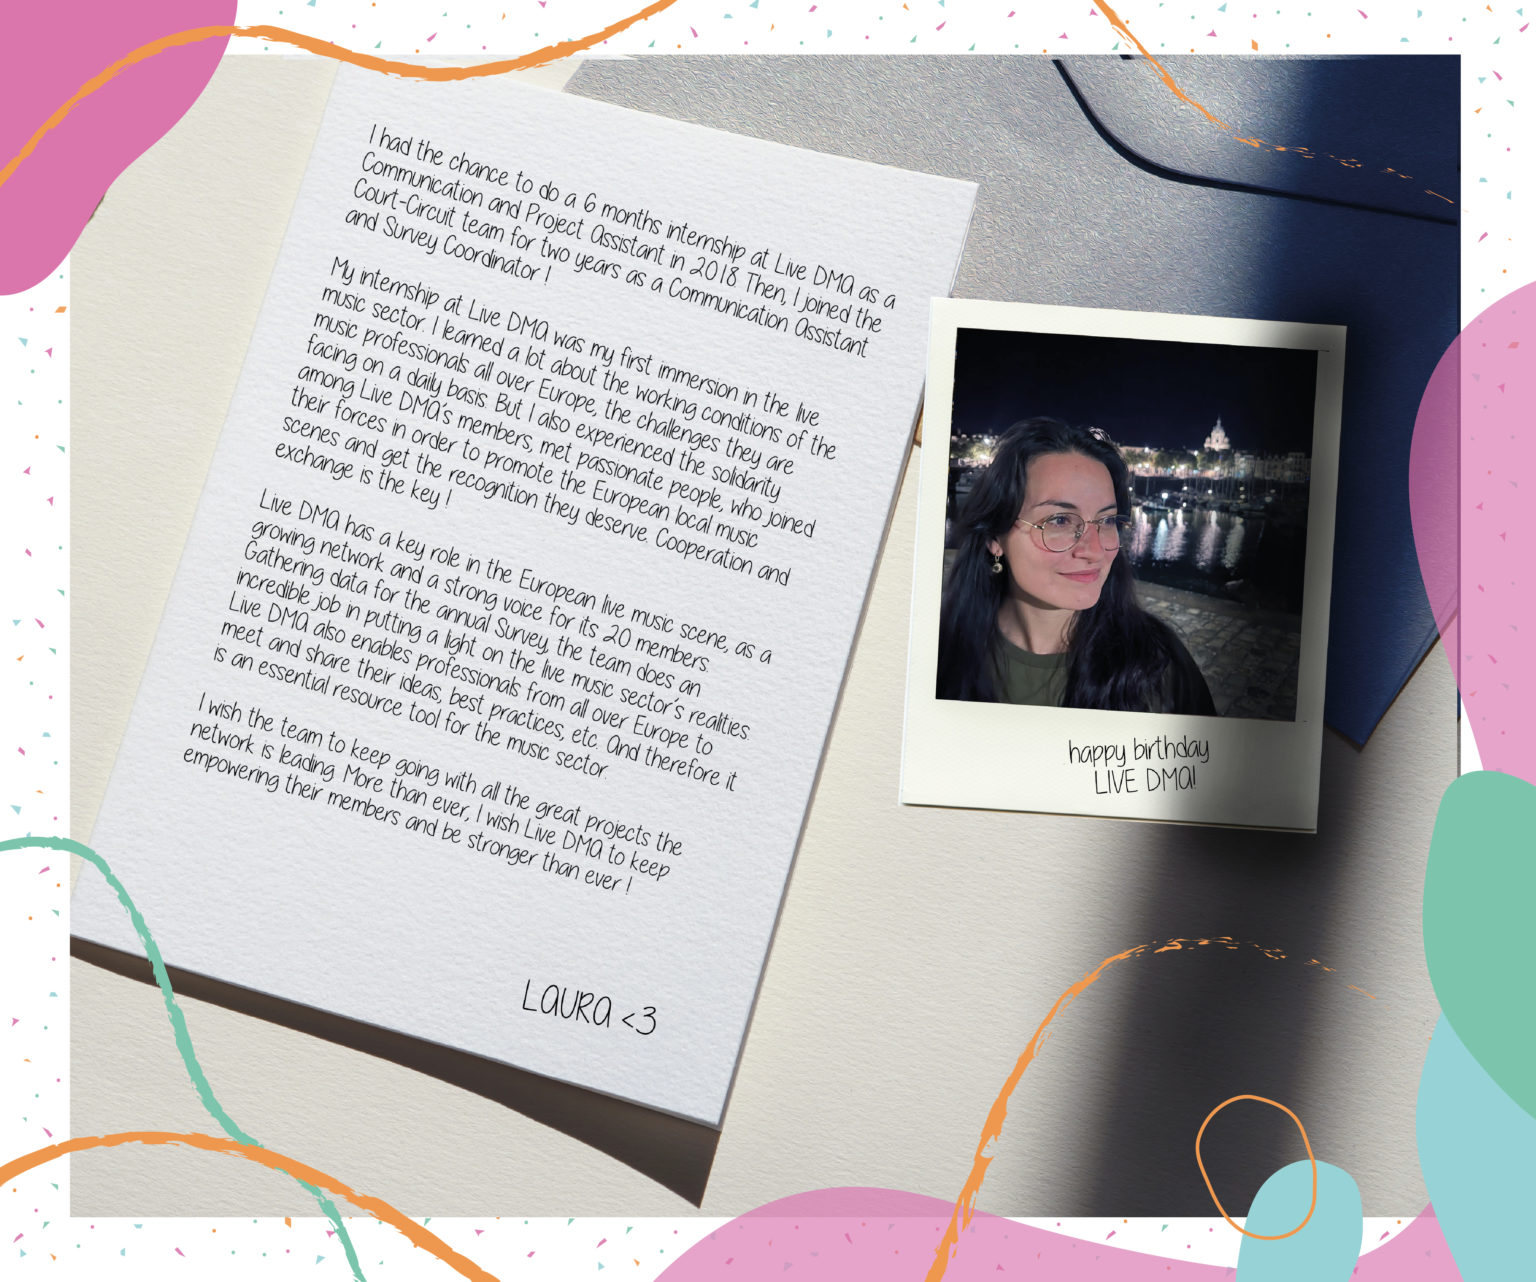 I had the chance to do a 6 months internship at Live DMA as a
Communication and Project Assistant in 2018. Then, I joined the
Court-Circuit team for two years as a Communication Assistant
and Survey Coordinator !
My internship at Live DMA was my first immersion in the live
music sector. I learned a lot about the working conditions of the
music professionals all over Europe, the challenges they are
facing on a daily basis. But I also experienced the solidarity
among Live DMA's members, met passionate people, who joined
their forces in order to promote the European local music
scenes and get the recognition they deserve. Cooperation and
exchange is the key !
Live DMA has a key role in the European live music scene, as a
growing network and a strong voice for its 20 members.
Gathering data for the annual Survey, the team does an
incredible job in putting a light on the live music sector's realities.
Live DMA also enables professionals from all over Europe to
meet and share their ideas, best practices, etc. And therefore it
is an essential resource tool for the music sector.
I wish the team to keep going with all the great projects the
network is leading. More than ever, I wish Live DMA to keep
empowering their members and be stronger than ever !
LAURA <3
happy birthday
LIVE DMA!